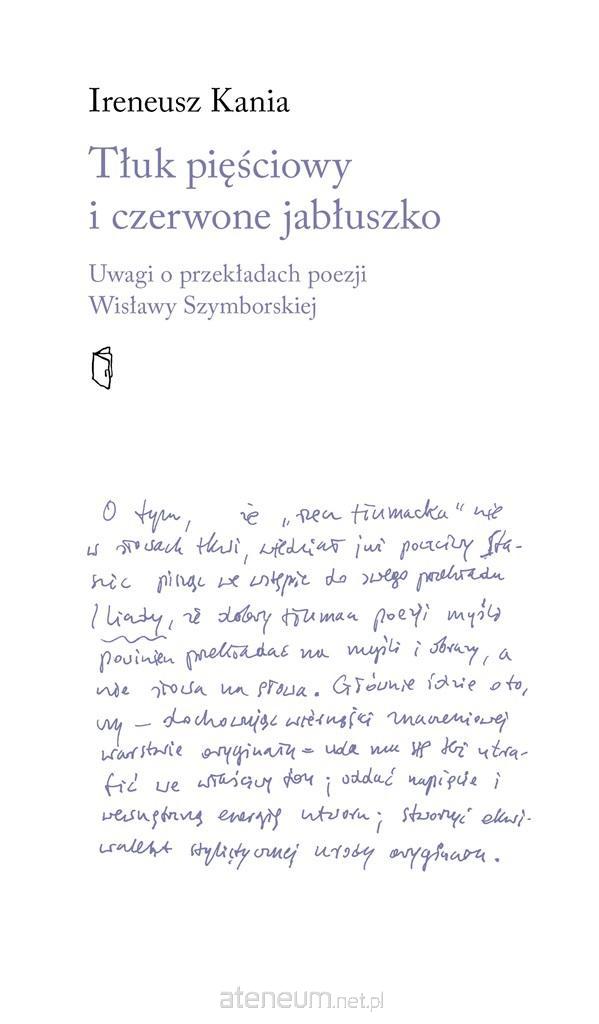 Ireneusz Kania
Tłuk pięściowy
i czerwone jabłuszko
Uwagi o przekładach poezji
Wisławy Szymborskiej
O tym, że „rzecz tłumacka" nie
w słowach tkwi, wiedział już poczciwy Sta-
szic pisząc we wstępie do swego przekładu
Iliady, że dobry tłumacz poezji myśli
powinien przekładać na myśli i obrazy, a
nie słowa na słowa. Głównie idzie o to,
czy – dochowując wierności znaczeniowej
warstwie oryginału – uda mu się też utra-
fić we właściwy ton; oddać napięcie i
wewnętrzną energię utworu; stworzyć ekwi-
walent stylistycznej urody oryginału.
ateneum.net.pl